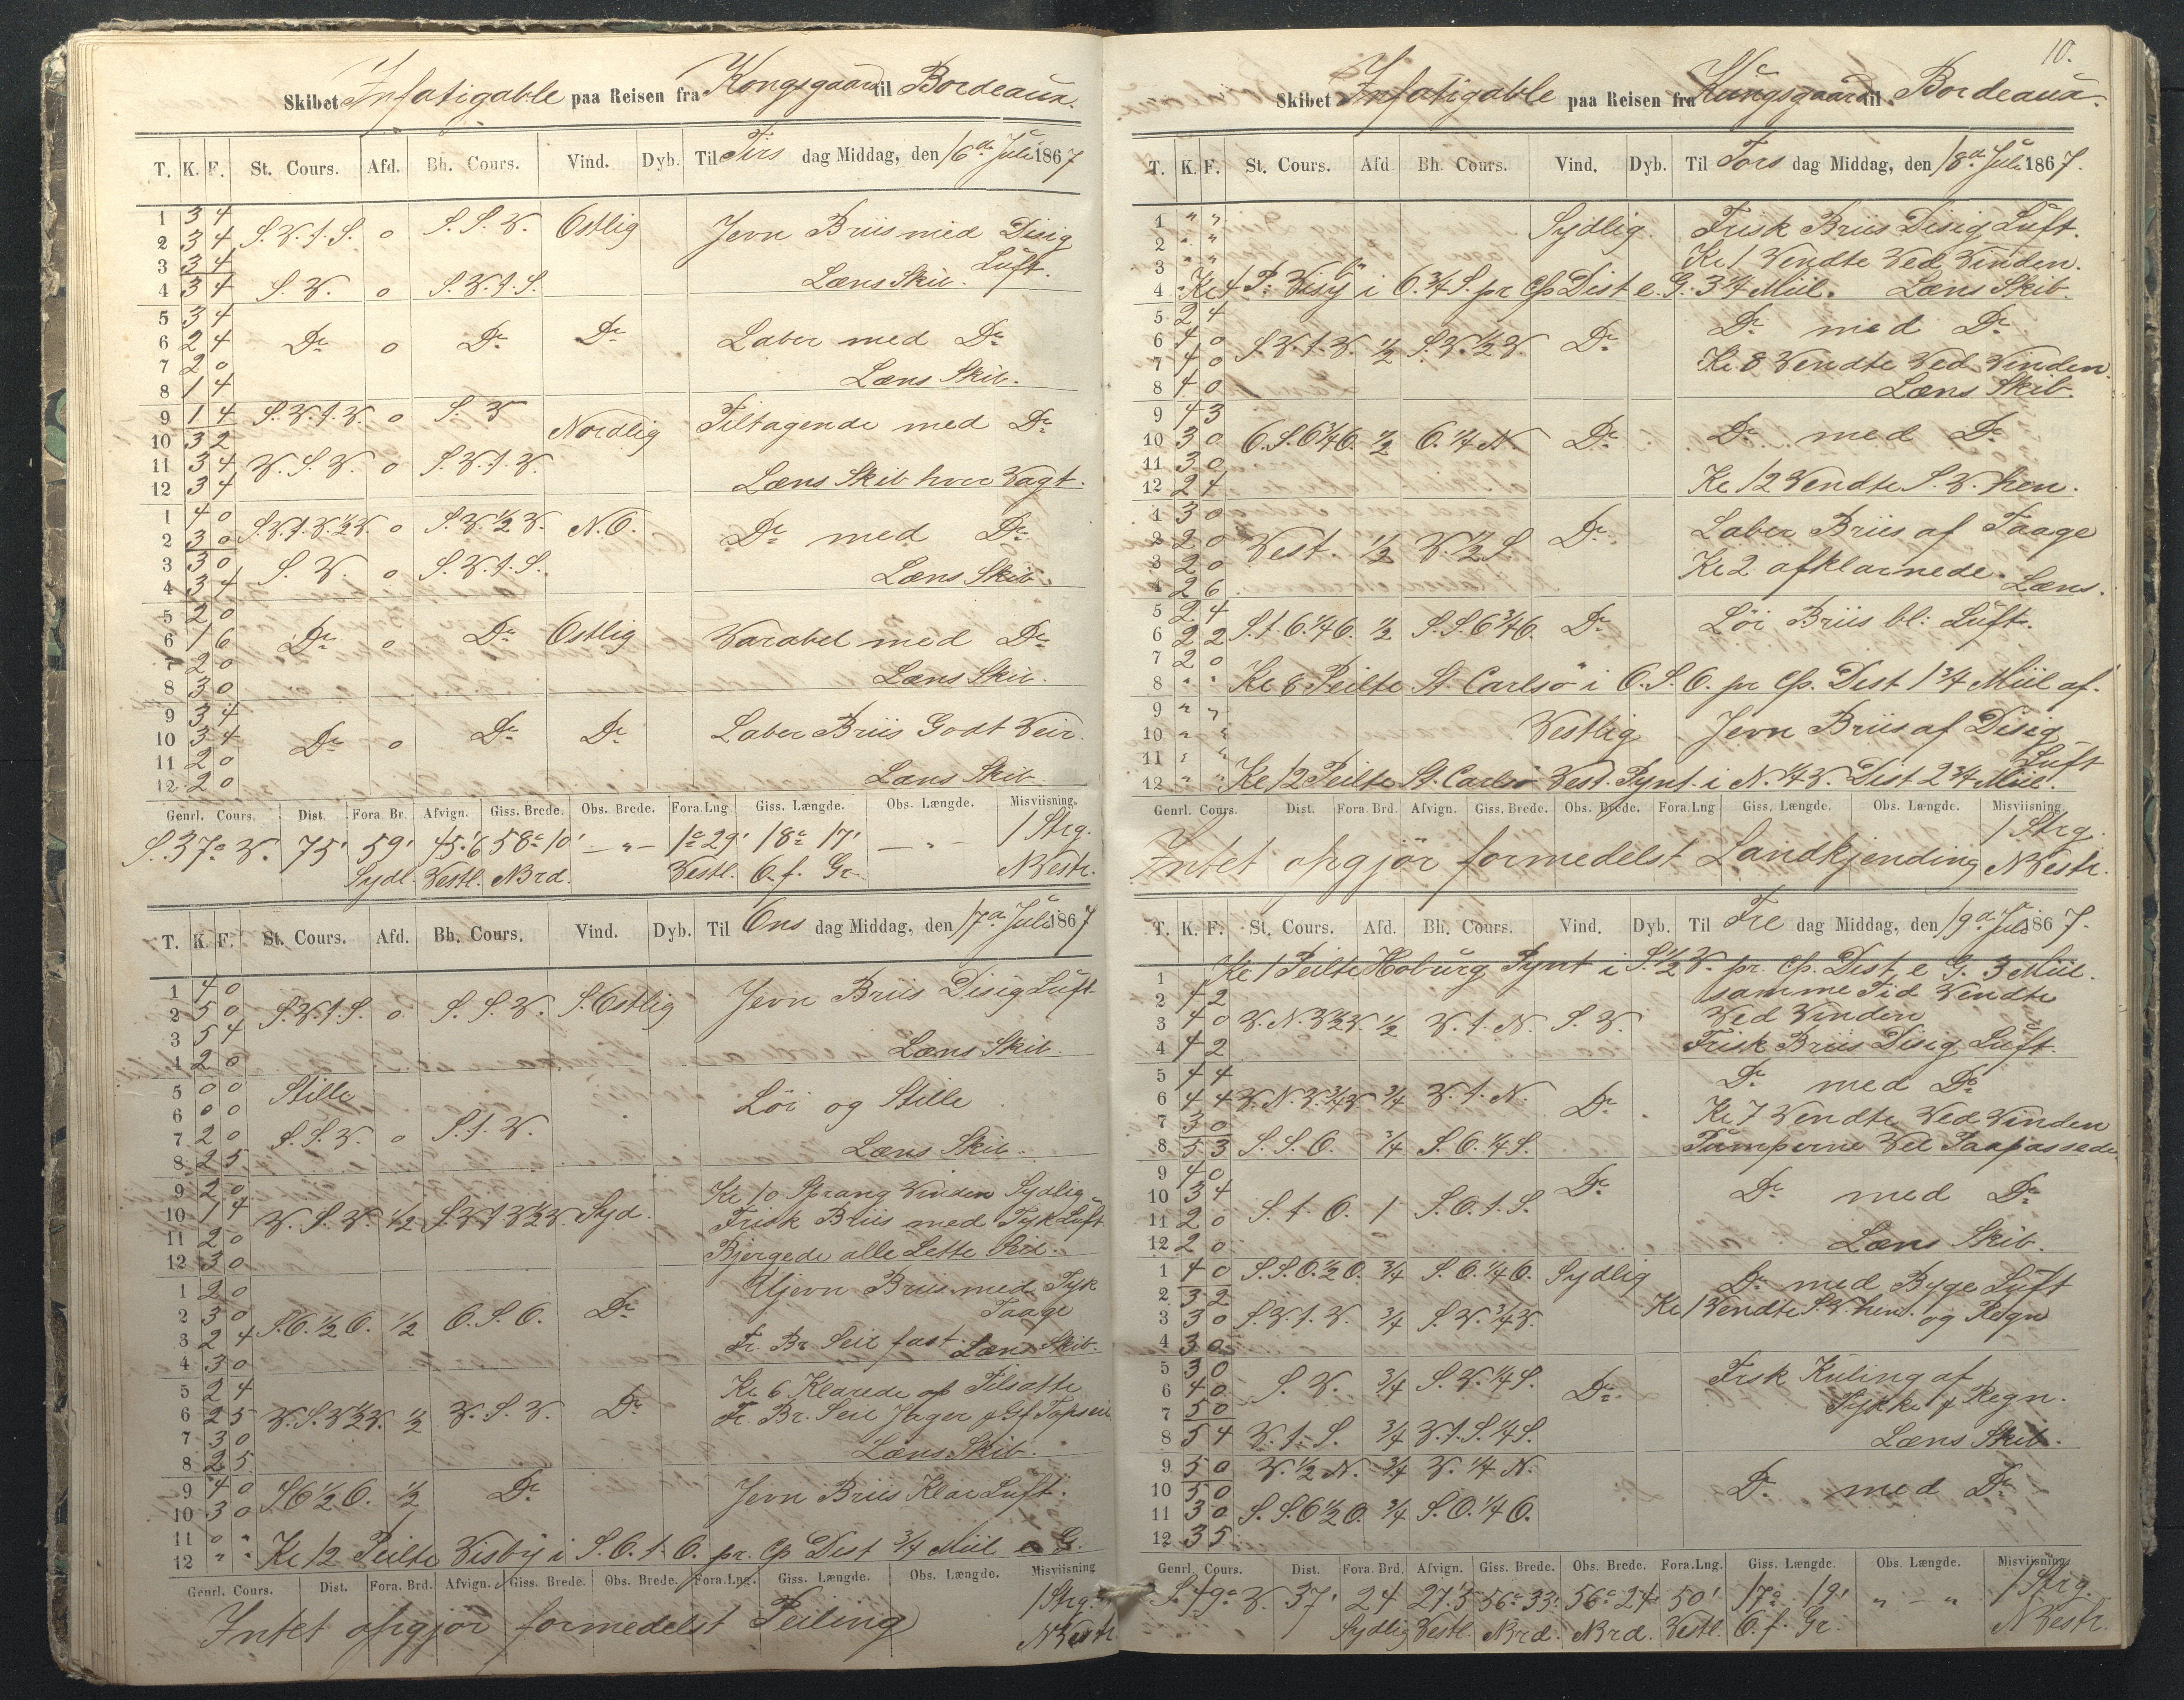 Skibet Infatigable paa Reisen fra Kongsgaard til Bordeaux.
T. K. F. St. Cours. Afd. Bh. Cours. Vind. Dyb. Til Tirs dag Middag, den 16de Juli 1867
1 3 4
2 3 4 S.V.t.S. o S.S.V. Ostlig Jevn Briis med Disig
3 3 4 Luft.
4 3 4 S.V. o S.V.t.S. Læns Skib.
5 3 4
6 2 4 Do o Do Do Laber med Do
7 2 0
8 1 4 Læns Skib.
9 1 4 S.V.t.V. o S.V
10 3 2 Nordlig Tiltagende med Do
11 3 4 V.S.V. o S.V.t.V.
12 3 4 Læns Skib hver Vagt.
1 4 0 S.V.t.V.½V. o S.V.½V. N.O.
2 3 0 Do med Do
3 3 0 S.V. o S.V.t.S.
4 3 4 Læns Skib.
5 2 0
6 1 6 Do o Do Ostlig Varabel med Do
7 2 0
8 3 0 Læns Skib.
9 3 4
10 3 4 Do o Do Do Laber Briis Godt Veir.
11 2 0
12 2 0 Læns Skib
Genrl. Cours. Dist. Fora. Br. Afvign. Giss. Brede. Obs. Brede. Fora.Lng Giss. Længde. Obs. Længde. Misviisning.
S.37° V. 75' 59' 45'.6 58° 10' — „ — 1° 29' 18° 17' — „ — 1 Strg.
Sydl. Vestl. Nbrd. Vestl. O.f. Gr. NVestr.
T. K. F. St. Cours. Afd. Bh. Cours. Vind. Dyb. Til Ons dag Middag, den 17de Juli 1867
1 4 0
2 5 0 S.V.t.S. o S.S.V. S.Ostlig Jevn Briis Disig Luft
3 5 4
4 2 0 Læns Skib.
5 0 0 Stille
6 0 0 Löi og Stille
7 2 0 S.S.V. o S.t.V.
8 2 5 Læns Skib.
9 2 0 Kl 10 Sprang Vinden Sydlig
10 1 4 V.S.V. ½ S.V.t.V½V. Syd. Frisk Briis med Tyk Luft
11 2 0
12 3 0 Bjergede alle Lette Seil.
1 2 0 Ujevn Briis med Tyk
2 3 0 S.O.½O. ½ O.S.O. Do Taage
3 2 4 Fr. Br. Seil fast. Læns Skib.
4 3 0
5 2 4 Kl 6 Klarede af Tilsatte
6 2 5 V.S.V½V. ½ V.S.V. Do Fr. Br. Seil Jager & Gf Topseil
7 3 0
8 2 5 Læns Skib.
9 4 0
10 3 0 SO½O. ½ Do Jevn Briis Klar Luft.
11 0 „
12 „ „ Kl 12 Peilte Visby i S.O.t.O. pr. Cp Dist ¾ Miil e G.
Genrl. Cours. Dist. Fora. Brd. Afvign. Giss. Brede. Obs. Brede. Fora.Lng. Giss. Længde. Obs. Længde. Misviisning
Intet opgjör formedelst Peiling 1 Strg.
NVestr
10.
Skibet Infatigable paa Reisen fra Kungsgaard til Bordeaux.
T. K. F. St. Cours. Afd Bh. Cours. Vind. Dyb. Til Tors dag Middag, den 18de Juli 1867.
1 „ „ Sydlig. Frisk Briis Disig Luft.
2 „ „ Kl 1 Vendte Ved Vinden.
3 „ „
4 Kl 4 P. Visby i O.¾S. pr Cp Dist e. G. 3¾ Miil. Læns Skib.
5 2 4 Do med Do
6 4 0 S.V.t.V. ½ S.V.½V. Do
7 4 0 Kl. 8 Vendte Ved Vinden.
8 4 0 Læns Skib.
9 4 3
10 3 0 O.S.O¾O. ½ O.¼N. Do Do med Do
11 3 0
12 2 4 Kl 12 Vendte S.V. hen.
1 3 0 Laber Briis af Taage
2 2 0 Vest. ½ V.½S. Do
3 2 0 Kl 2 afklarnede.
4 2 6 Læns.
5 2 4 Löi Briis bl: Luft.
6 2 2 S.t.O.¼O. ½ S.S.O¾O. Do
7 2 0
8 „ „ Kl 8 Peilte St. Carlsö i O.S.O. pr Cp. Dist 1¾ Miil af.
9 „ „
10 „ „ Vestlig Jevn Briis af Disig
11 „ „ Luft
12 „ „ Kl 12 Peilte St. Carlsö Vest. Pynt. i N.¼V. Dist 2¾ Miil.
Genrl. Cours. Dist. Fora. Brd. Afvign. Giss. Brede. Obs. Brede. Fora.Lng Giss. Længde. Obs. Længde. Misviisning
Intet opgjör formedelst Landkjending 1 Strg.
NVestr.
T. K. F. St. Cours. Afd. Bh. Cours. Vind. Dyb. Til Fre dag Middag, den 19de Juli 1867.
1 Kl 1 Peilte Hoburg Pynt i S.½V. pr. Cp. Dist. e G. 3 Miil.
2 4 2 samme Tid Vendte
3 4 0 V.N.V½V. ½ V.t.N. S.V. Ved Vinden
4 4 2 Frisk Briis Disig Luft.
5 4 4 Do med Do
6 4 4 V.N.V.¾V ¾ V.t.N. Do
7 3 0 Kl 7 Vendte Ved Vinden
8 5 3 S.S.O. ¾ S.O.¼S. Pumperne Vel Paapassede
9 4 0
10 3 4 S.t.O. 1 S.O.t.S. Do Do med Do
11 2 0
12 2 0 Læns Skib.
1 4 0 S.S.O.½O. ¾ S.O.¼O. Sydlig Do med Byge Luft
2 3 2 Kl 1 Vendte S.V. hen. og Regn
3 3 0 S.V.t.V. ¾ S.V.¾V.
4 3 0
5 3 0 Frsk Kuling af
6 4 0 S.V. ¾ S.V.¼S. Do Tykke & Regn.
7 5 0
8 5 4 V.t.S. ¾ V.t.S.¼S. Læns Skib.
9 5 0 V.½N. ¾ V.¼N.
10 5 0 Do med Do
11 3 0 S.S.O½O. ¾ S.O.¼O.
12 3 5
Genrl. Cours. Dist. Fora. Brd. Afvign. Giss. Brede. Obs. Brede. Fora.Lng. Giss. Længde. Obs. Længde. Misviisning
S.49° V. 37' 24 27'.5 56° 33' 56° 24' 50' 17° 19' „ — „ 1 Strg.
Sydlig Vestl. Nbrd. Nbrd. Vestl. O.f. Gr. NVestr.